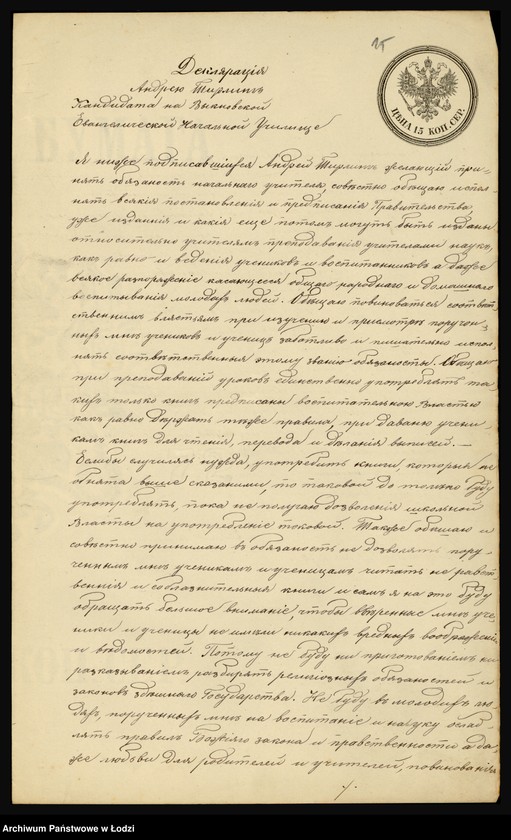 25
Декляр​ація
Андрею Тирлинъ
Кандидата на Выковской
Евангелической Начальной Училище
ЦѢНА 15 КОП. СЕР.
Я ниже подписавшійся Андрей Тирлинъ желающій при-
нять обязаность начальнаго учителя, совѣстно обѣщаю испол-
нять всякія постановленія и предписанія Правительства
уже изданія и какія еще потомъ могутъ быть изданы
относительно учителямъ преподаванія учителами наукъ,
какъ равно и веденія учениковъ и воспитонниковъ а даже
всякое разпоряженіе касающееся общаго народнаго и домашнаго
воспитыванія молодыхъ людей. Обѣщаю повиноваться соотвѣт-
ственнимъ властямъ при изученію и присмотрѣ поручон-
ныхъ мнѣ учениковъ и ученицъ заботливо и тщательно испол-
нять соотвѣтственныя этому званію обязаности. Обѣщаю
при преподаваній уроковъ единственно употреблять та-
кихъ только книгъ предписани воспитательною властью
какъ равно держать тѣже правила, при даваню учени-
камъ книгъ для чтенія, перевода и дѣланія выписей. —
Еслибы случилась нужда, употребить книги, которыя не
обнята выше сказаними, то таковой до только буду
употреблять, пока не получаю дозволенія школьной
Власты на употребленіе токовой. Также обѣщаю и
совѣстно принимаю въ обязаность не дозволять пору-
ченнымъ мнѣ ученикамъ и ученицамъ читать не равот-
веннія и соблазнительныя книги и самъ я на это буду
обращать большое вниманіе, чтобы ввѣренные мнѣ уче-
ники и ученицы не имѣли никакихъ вредныхъ воображеній
и вѣдомостей. Потому не буду ни приготованіемъ ни
разказываніемъ разбирать религіозныхъ обязаностей и
законовъ здѣшнаго Государства. Не буду въ молодыхъ лю-
дяхъ, порученныхъ мнѣ на воспитаніе и науку ослаб-
лять правилъ Божіяго закона и нравственности а да-
же любьви для родителей и учителей, повинованія
./.
Archiwum Państwowe w Łodzi